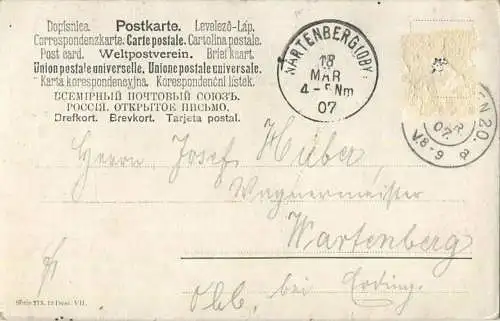 Dopisnica. Postkarte. Levelező-Láp.
Correspondenzkarte. Carte postale. Cartolina postale.
Post card. Weltpostverein. Briefkaart.
Union postale universelle. Unione postale universale.
Karta korespondencyjna. Korespondenční listek.
ВСЕМІРНЫЙ ПОЧТОВЫЙ СОЮЗЪ.
РОССІЯ. ОТКРЫТОЕ ПИСЬМО.
Drefkort. Brevkort. Tarjeta postal.
WARTENBERG (OBY.)
18
MAR
4-5Nm
07
N20.
07.
V.8-9
Herrn Josef Huber,
Wagnermeister
Wartenberg
Obb. bei Erding.
Serie XIX. 12 Dess. VII.